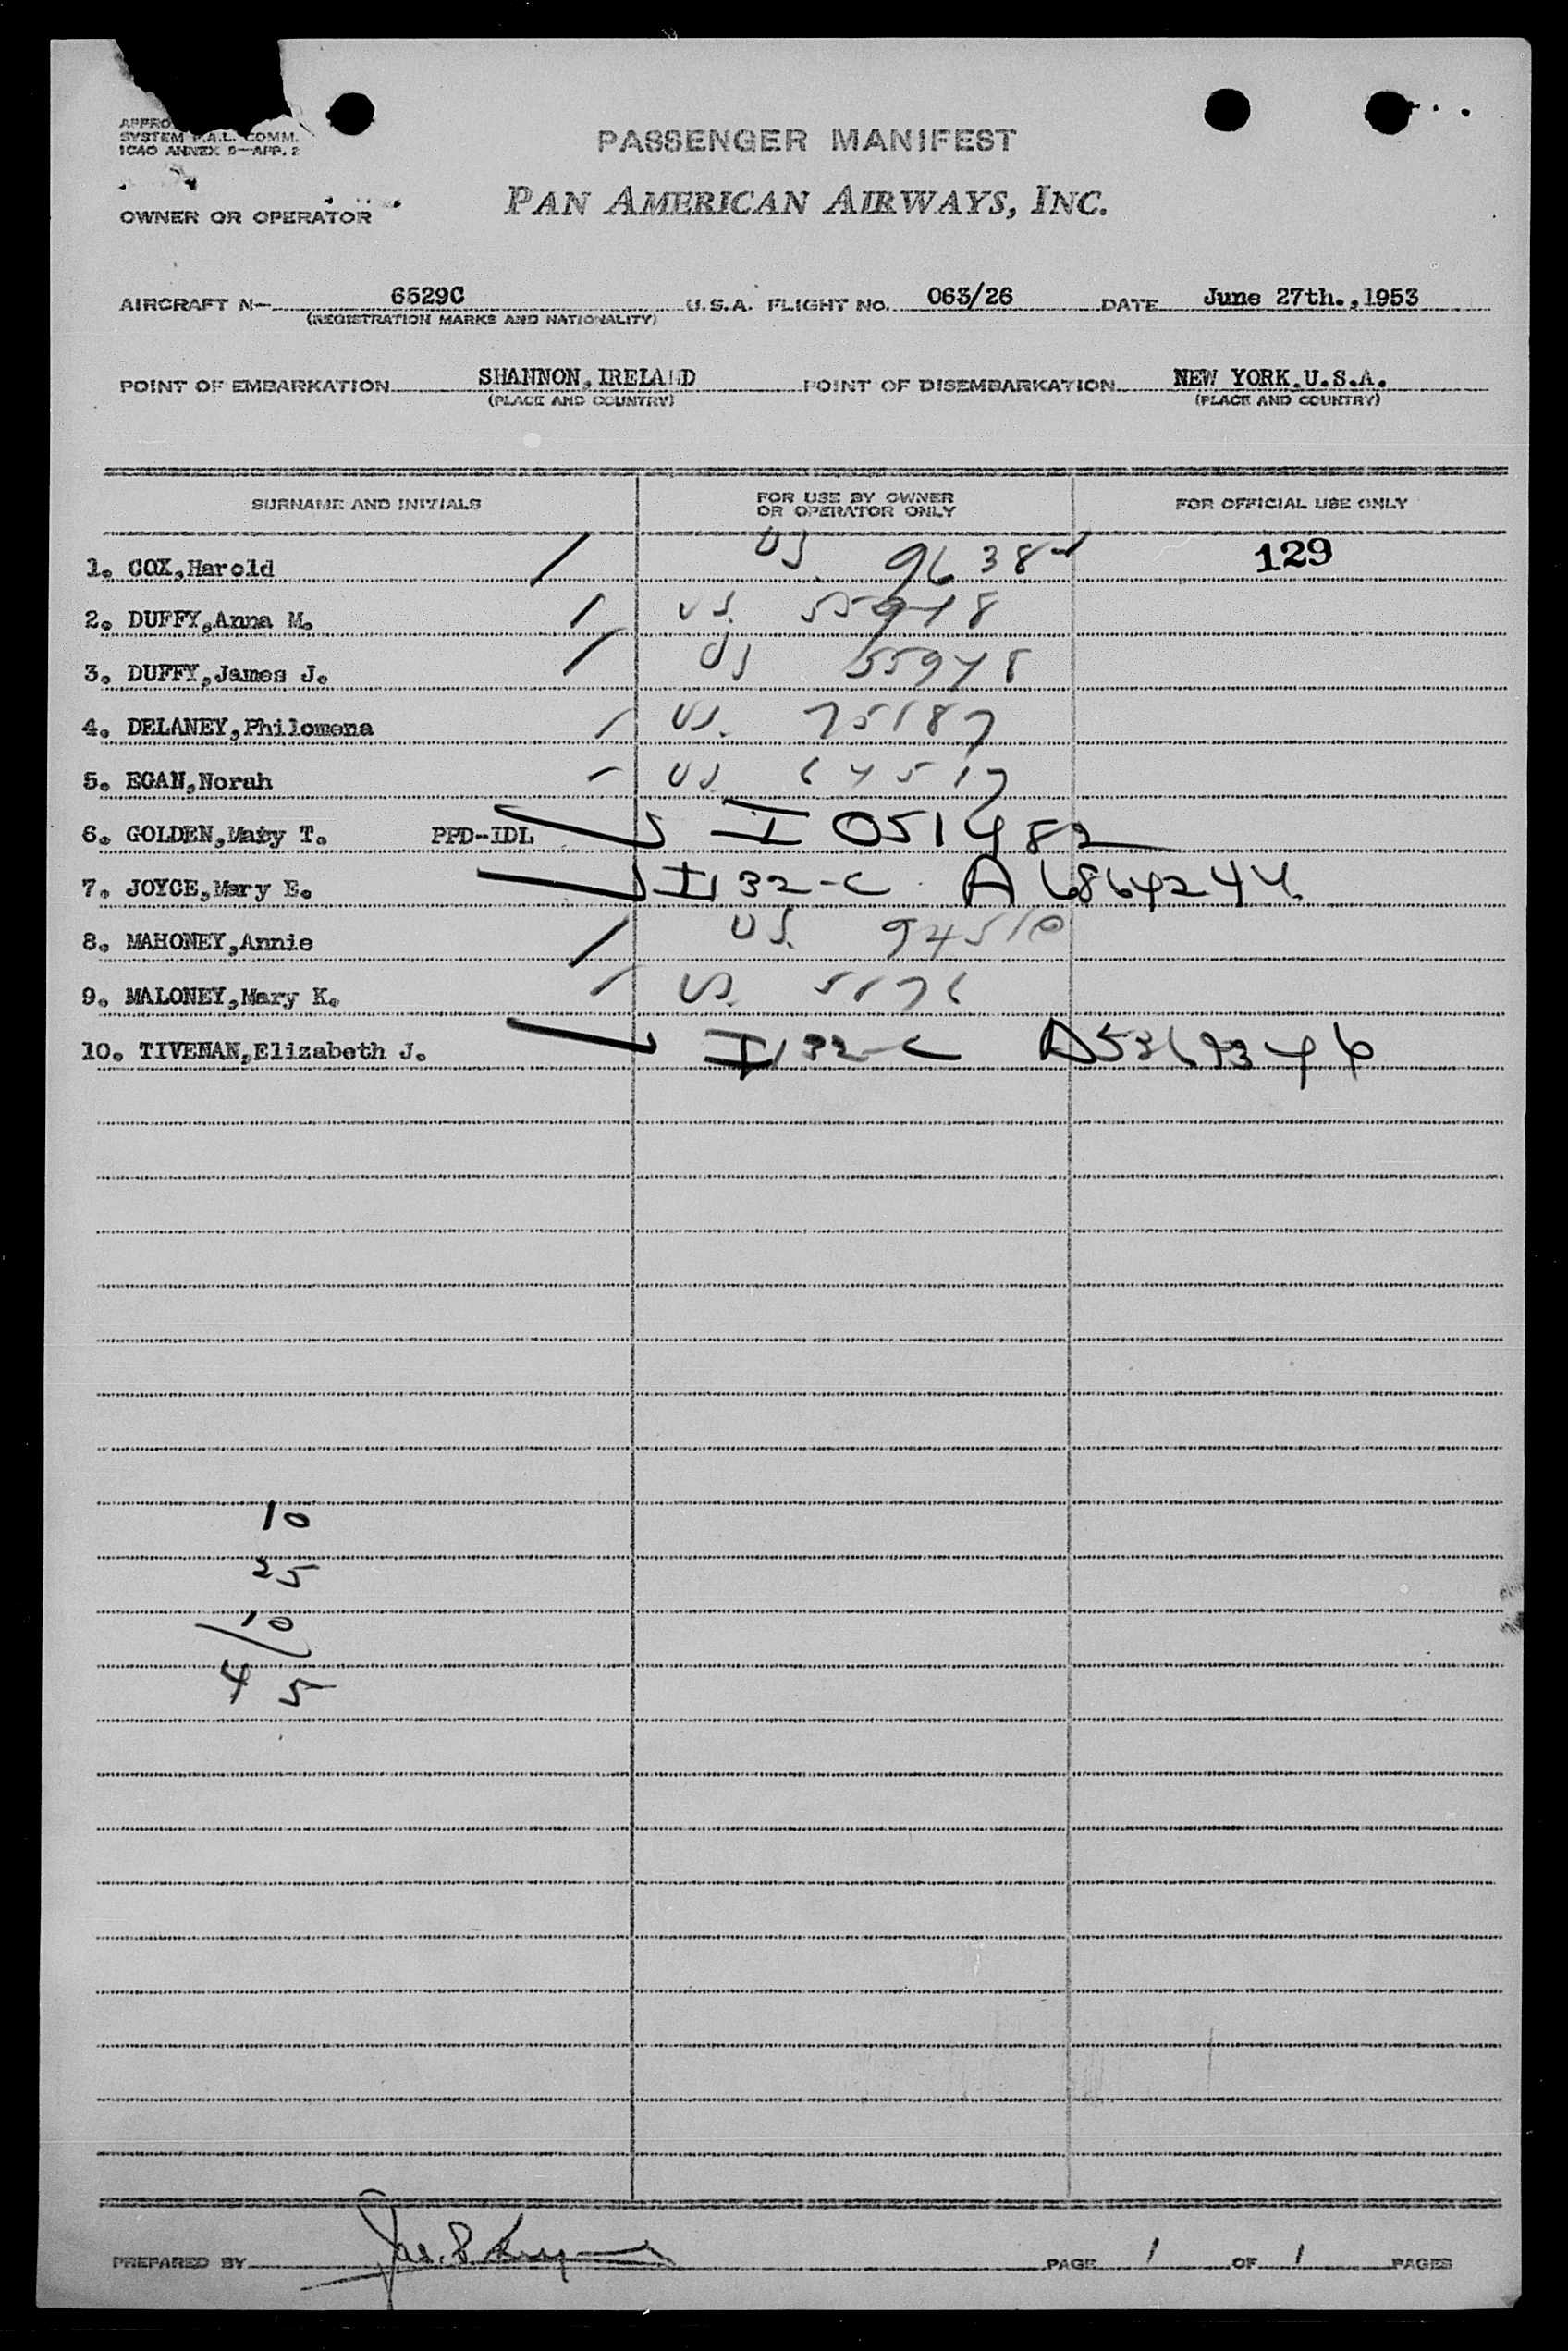 SYSTEM F.A.L. COMM.
ICAO ANNEX 9—APP. 2
PASSENGER MANIFEST
PAN AMERICAN AIRWAYS, INC.
OWNER OR OPERATOR
AIRCRAFT N— 6529C U.S.A. FLIGHT NO. 063/26 DATE June 27th.,1953
(REGISTRATION MARKS AND NATIONALITY)
POINT OF EMBARKATION SHANNON,IRELAND POINT OF DISEMBARKATION NEW YORK.U.S.A.
(PLACE AND COUNTRY) (PLACE AND COUNTRY)
SURNAME AND INITIALS FOR USE BY OWNER OR OPERATOR ONLY FOR OFFICIAL USE ONLY
1. COX,Harold US 129
2. DUFFY,Anna M. US. 55948
3. DUFFY,James J. US 55948
4. DELANEY,Philomena US. 75187
5. EGAN,Norah US. 64517
6. GOLDEN,Maby T. PPD-IDL I 051482
7. JOYCE,Mary E. I132-C A6864244
8. MAHONEY,Annie US. 94510
9. MALONEY,Mary K. US. 5176
10. TIVENAN,Elizabeth J. I132-C
10
25
10
45
PREPARED BY PAGE 1 OF 1 PAGES